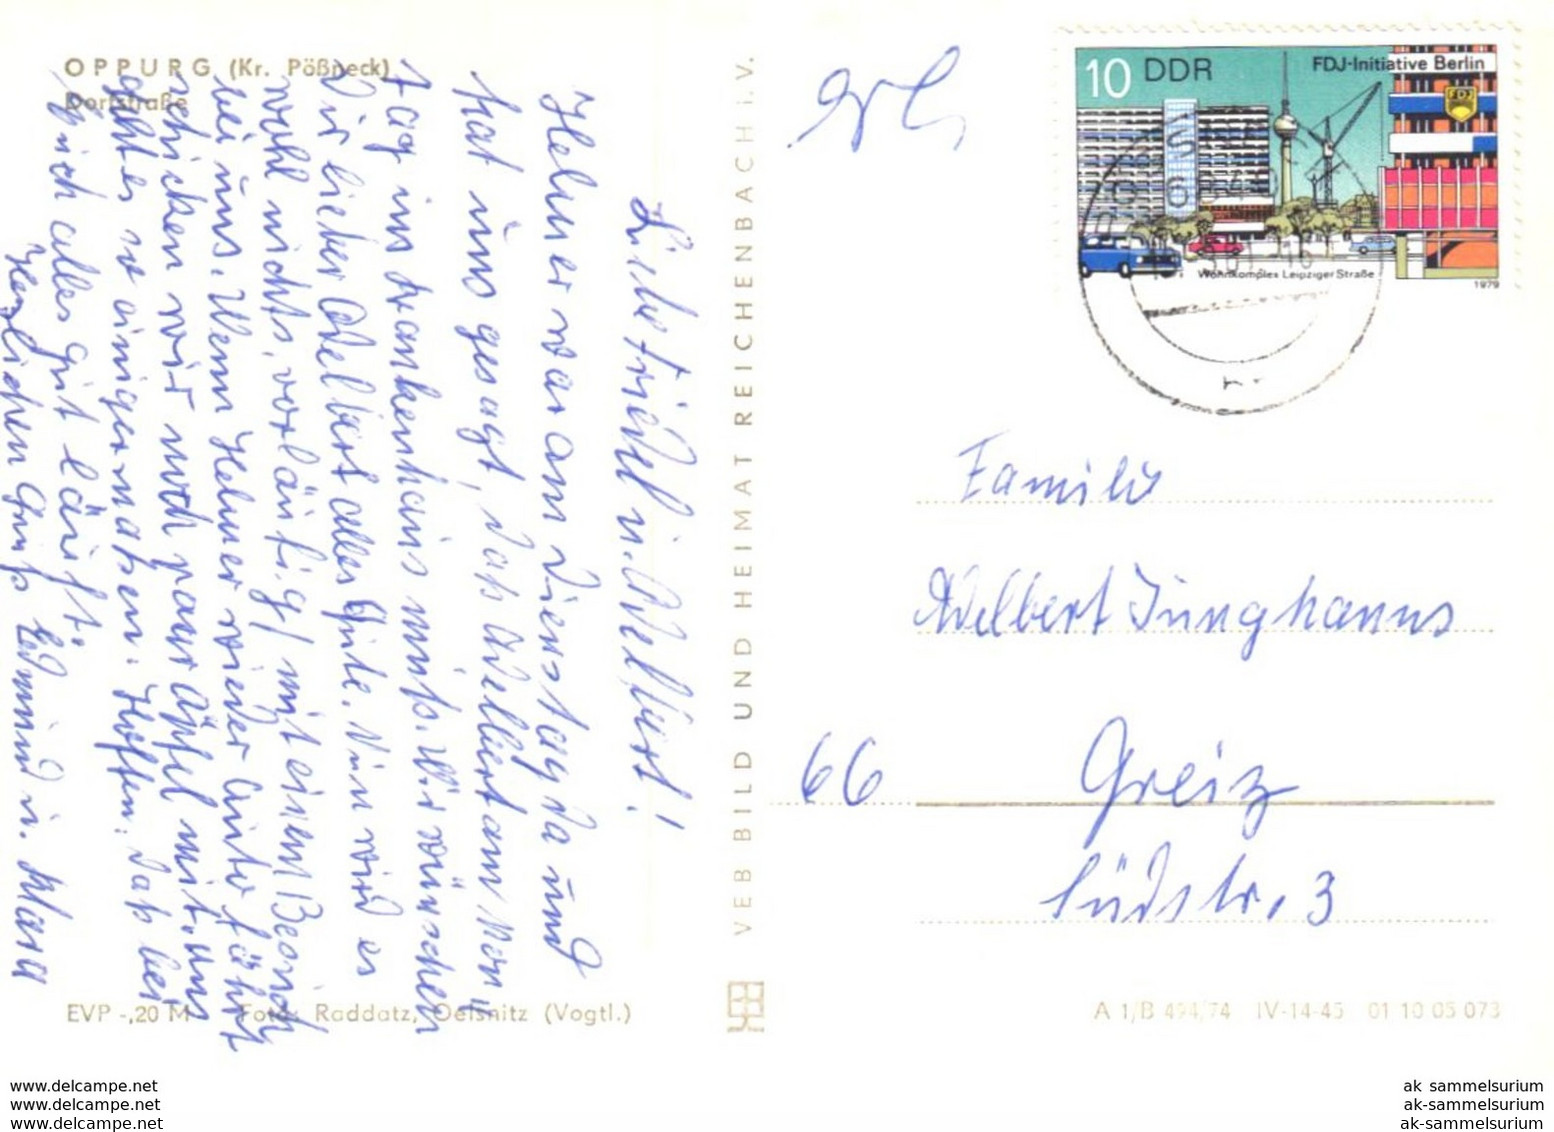 OPPURG (Kr. Pößneck)
Dorfstraße
Liebe Friedel u. Adelbert!
Helmer war am Dienstag da und
hat uns gesagt, daß Adelbert am Mon-
tag ins Krankenhaus muß. Wir wünschen
Dir lieber Adelbert alles Gute. Nun wird es
wohl nichts, vorläufig, mit einem Besuch
bei uns. Wenn Helmer wieder Auto fährt
schicken wir noch paar Äpfel mit. Uns
geht es so einigermaßen. Hoffen, daß bei
Euch alles gut läuft.
Herzlichen Gruß Edmund u. Klara
EVP -,20 M Foto: Raddatz, Oelsnitz (Vogtl.)
VEB BILD UND HEIMAT REICHENBACH i. V.
10 DDR
FDJ-Initiative Berlin
FDJ
Wohnkomplex Leipziger Straße
1979
Familie
Adelbert Junghanns
66 Greiz
Südstr. 3
A 1/B 494/74 IV-14-45 01 10 05 073
www.delcampe.net
www.delcampe.net
www.delcampe.net
ak_sammelsurium
ak-sammelsurium
ak-sammelsurium